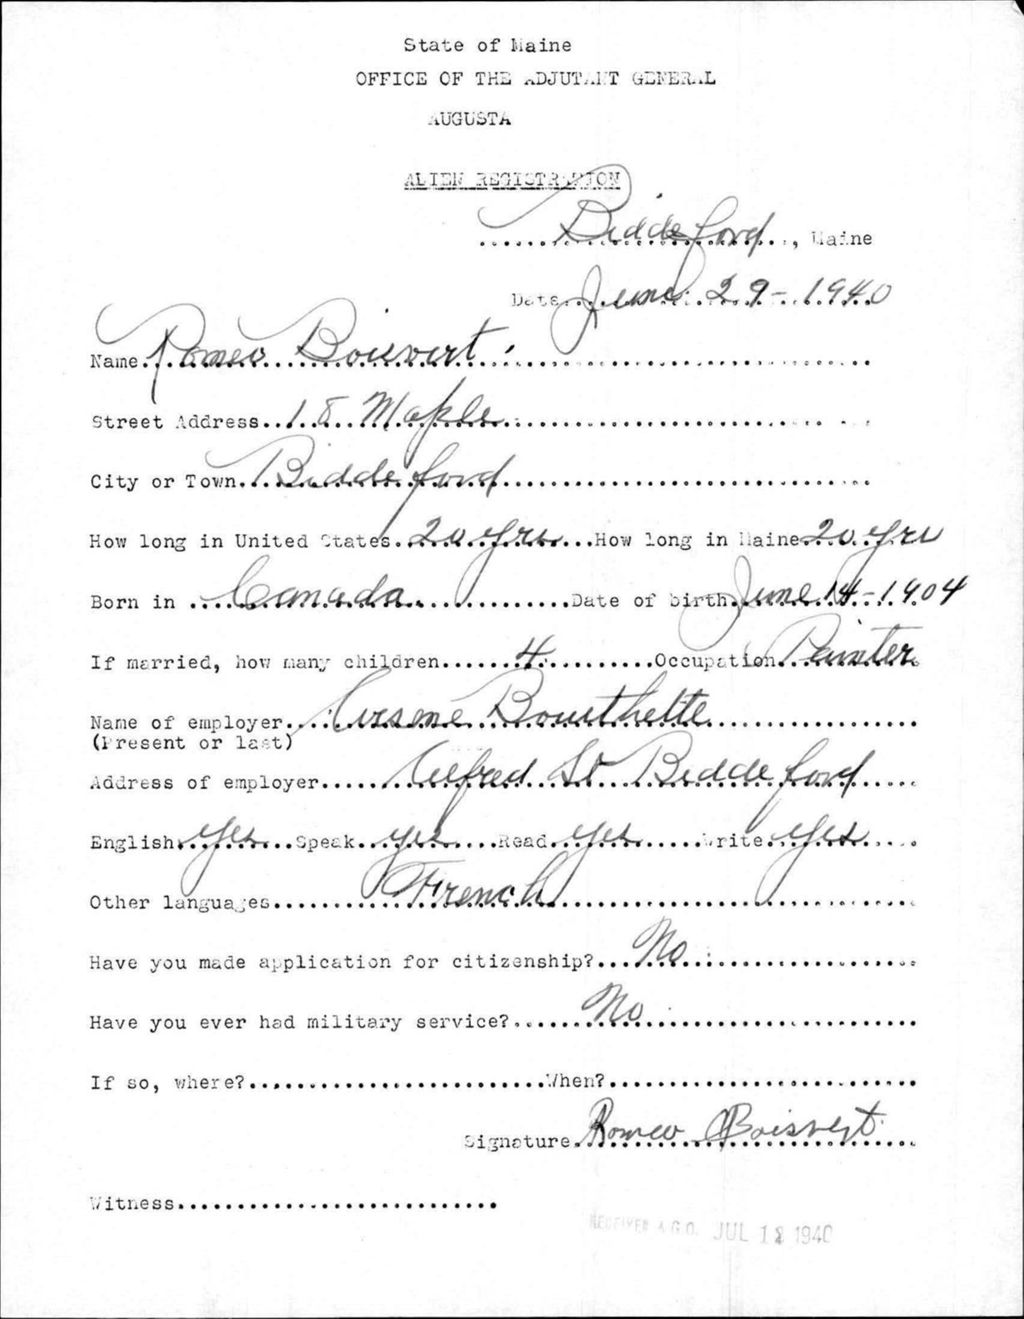 State of Maine
OFFICE OF THE ADJUTANT GENERAL
AUGUSTA
ALIEN REGISTRATION
Biddeford, Maine
Date June 29-1940
Name Romeo Boisvert
Street Address 18 Maple
City or Town Biddeford
How long in United States 20 yrs How long in Maine 20 yrs
Born in Canada Date of birth June 14-1904
If married, how many children 4 Occupation Painter
Name of employer Arsene Bouthette
(Present or last)
Address of employer Alfred St Biddeford
English Yes Speak yes Read Yes Write Yes
Other languages French
Have you made application for citizenship? No
Have you ever had military service? No
If so, where? When?
Signature Romeo Boisvert
Witness
RECEIVED A.G.O. JUL 12 1940